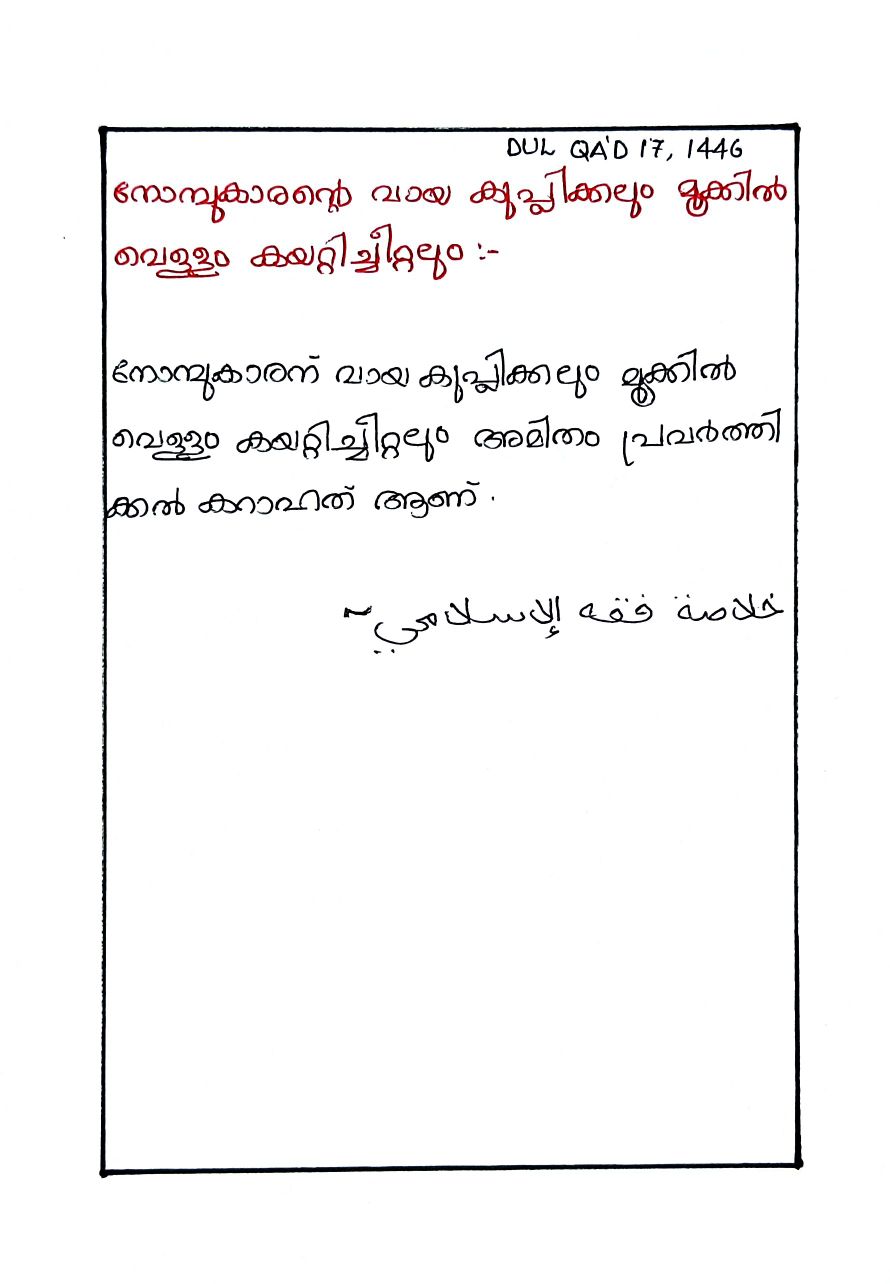 DUL QA'D 17, 1446
നോമ്പുകാരന്റെ വായ കുപ്ലിക്കലും മൂക്കിൽ
വെള്ളം കയറ്റിച്ചീറ്റലും :-
നോമ്പുകാരന് വായ കുപ്ലിക്കലും മൂക്കിൽ
വെള്ളം കയറ്റിച്ചീറ്റലും അമിതം പ്രവർത്തി
ക്കൽ കറാഹത് ആണ്.
خلاصة فقه الإسلامي ~